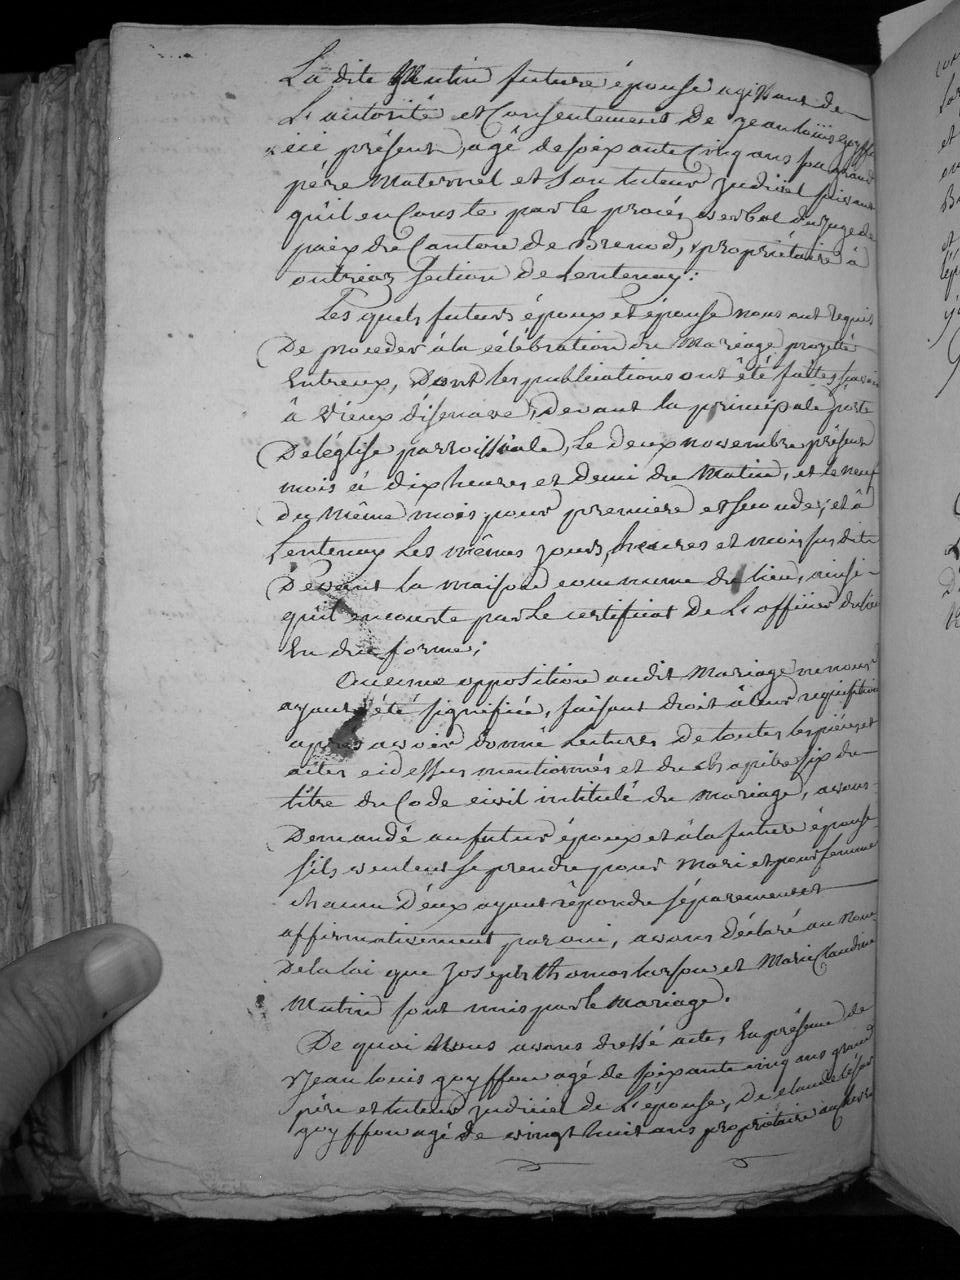 La dite Mutin future épouse agissant de
L'autorité et Consentement de jean louis guyffon
ici présent, agé de soixante Cinq ans son grand
père Maternel et Son tuteur judiciel suivant
qu'il en Conste par le procès verbal du juge de
paix du Canton de Brenod, propriétaire à
outriaz Section de Lentenay:
Les quels futurs époux et épouse nous ont requis
De proceder à la célébration du Mariage projetté
Entreux, Dont les publications ont été faittes savoir
à Vieux d'isenave, Devant la principale porte
De l'église parroissiale, Le deux novembre présent
mois à dix heures et demi du Matin, et le neuf
du même mois pour premiere et seconde; et à
Lentenay Les mêmes jours, heures et mois sus dits
Devant la maison commune du lieu, ainsi
qu'il en conste par le certificat de L'officier du lieu
En due forme;
Aucune opposition audit Mariage ne nous
ayant été signifiée, faisant droit à leur requisition
après avoir donné Lectures De toutes les pièces et
actes ci dessus mentionnés et du chapitre six du
titre du Code civil intitulé du Mariage, avons
Demandé au futur époux et à la future épouse
s'ils veulent se prendre pour Mari et pour femme
chacun D'eux ayant répondu séparement et
affirmativement par oui, avons Déclaré au Nom
De la loi que joseph thomas bur̶son et Marie Claudine
Mutin sont unis par le Mariage.
De quoi Nous avons dressé acte, En présence de
jean louis guyffon agé de soixante cinq ans grand
père et tuteur judiciel de L'épouse, De claude césar
guyffon agé de vingt huit ans propriétaire